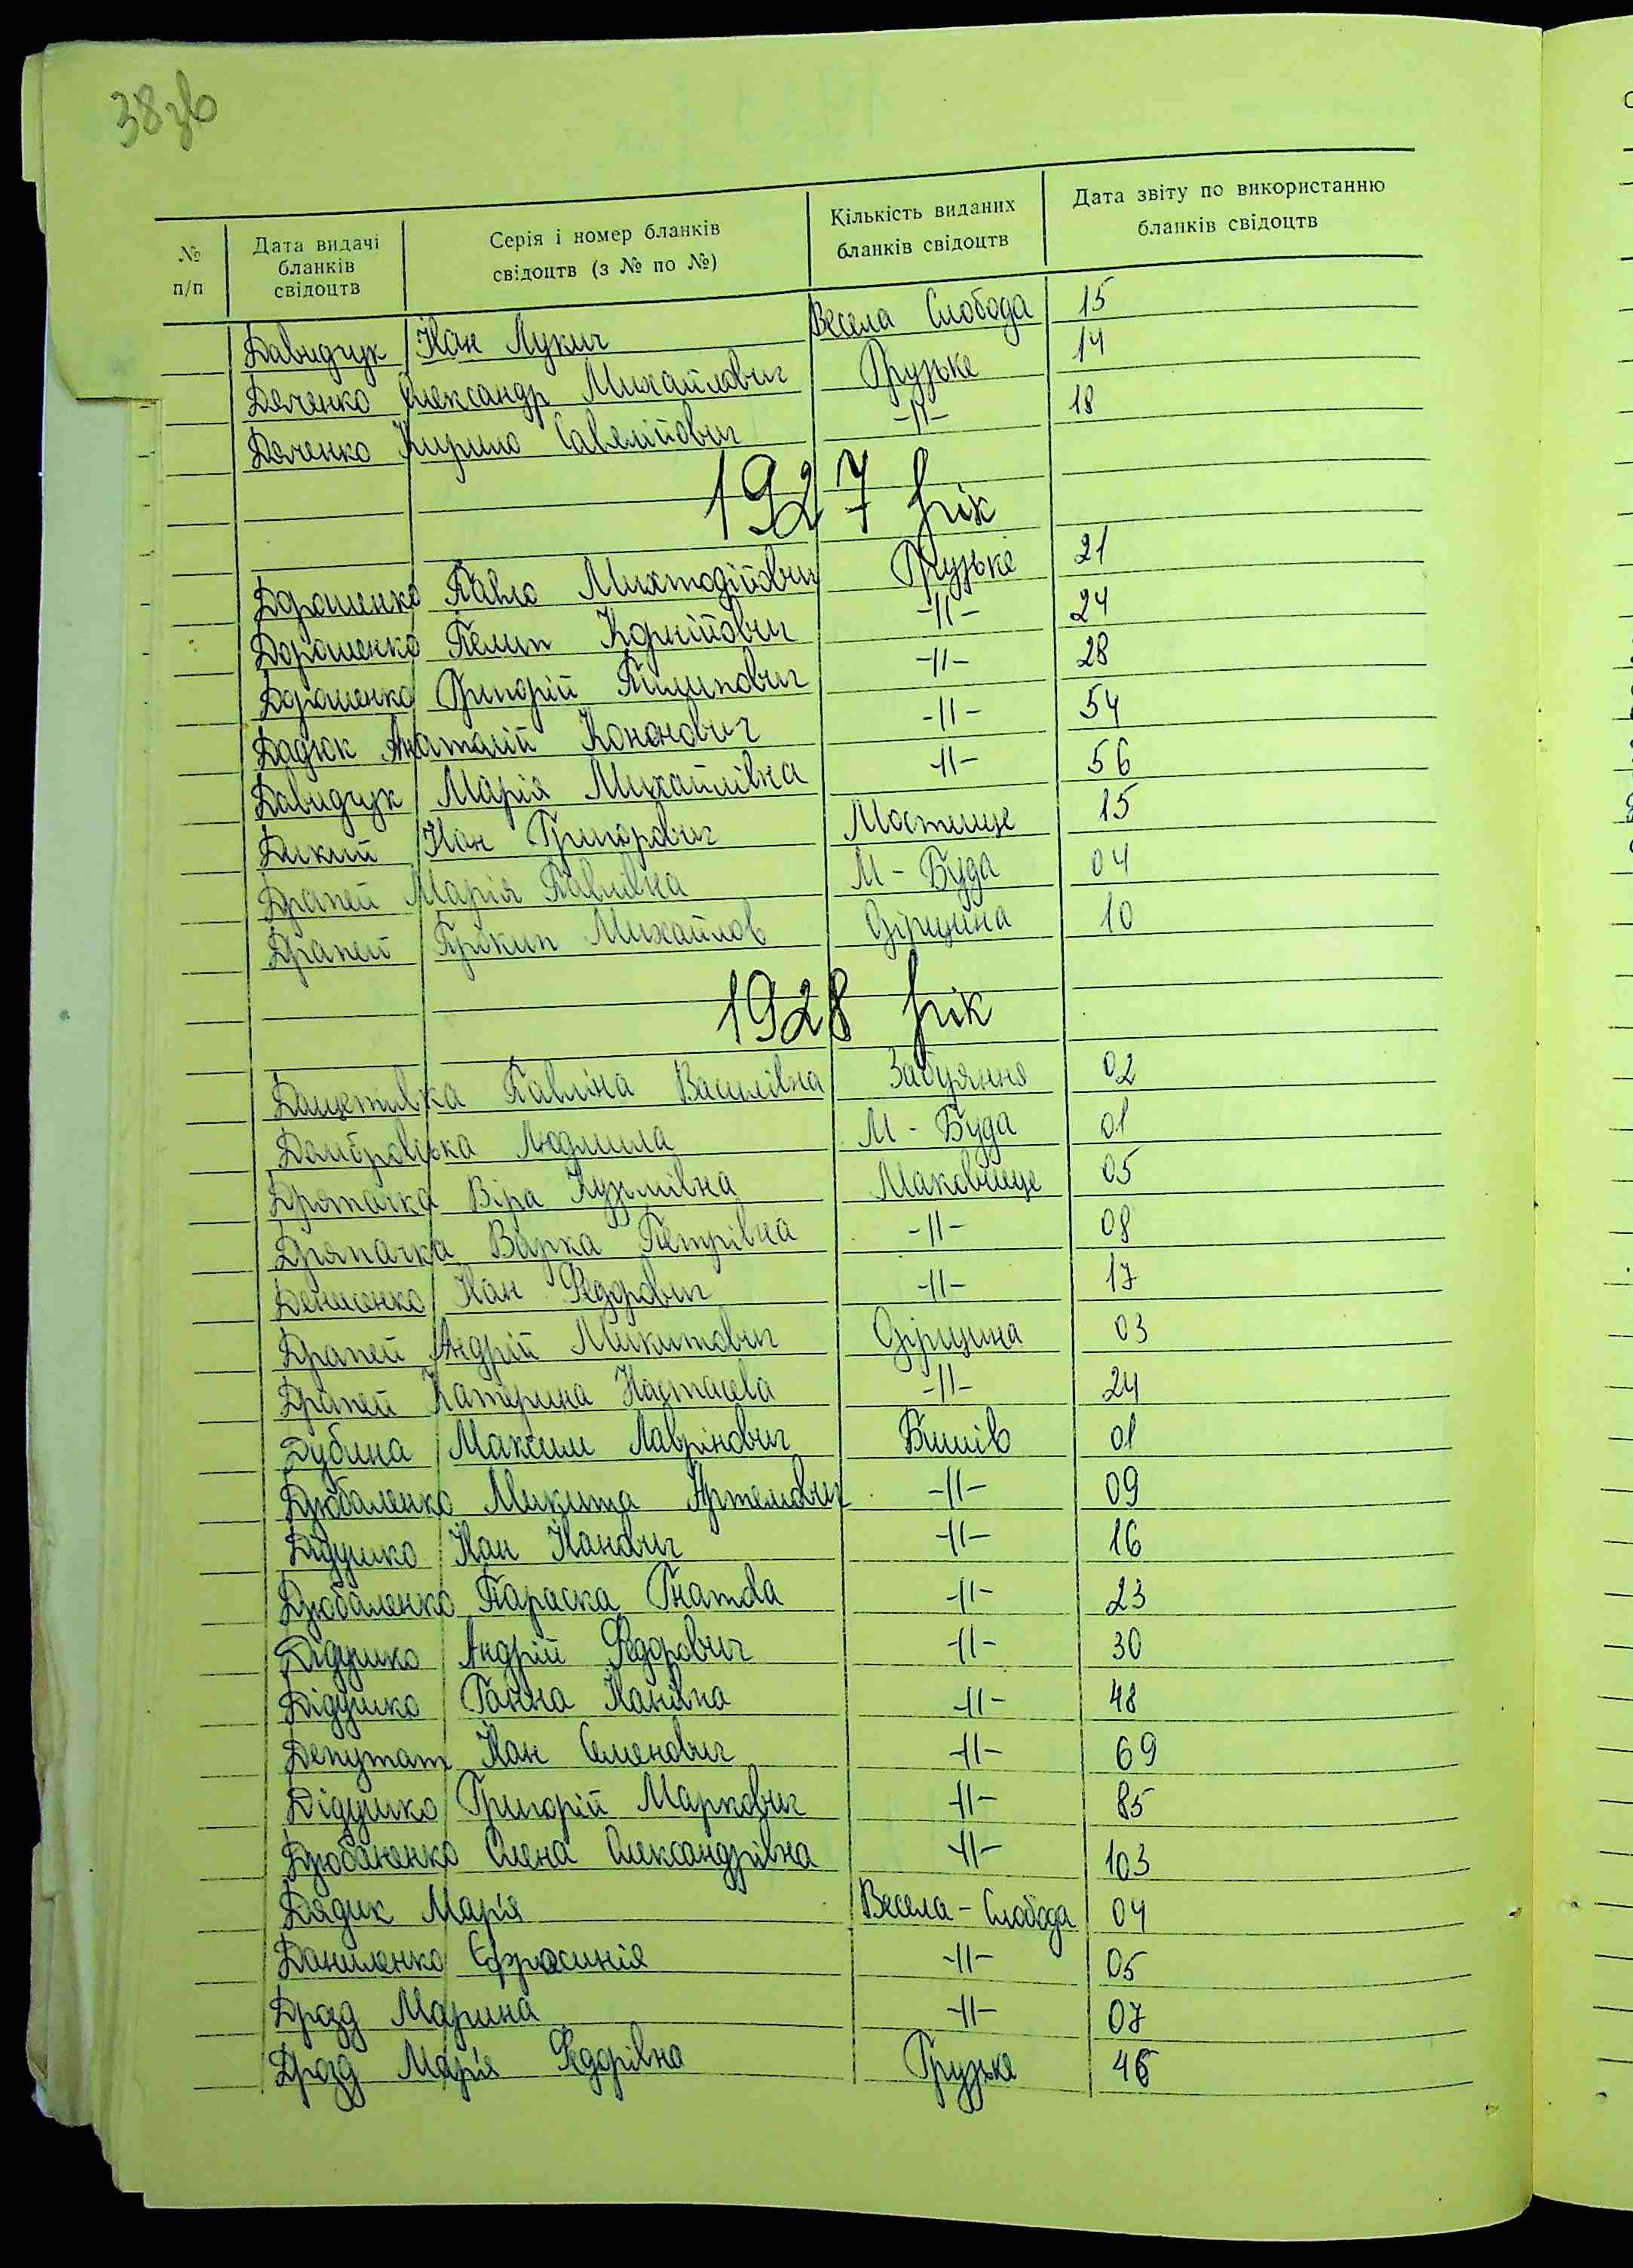 38зв
№ п/п
Дата видачі бланків свідоцтв
Серія і номер бланків свідоцтв (з № по №)
Кількість виданих бланків свідоцтв
Дата звіту по використанню бланків свідоцтв
Давидчук Іван Лукич Весела Слобода 15
Дяченко Олександр Михайлович Грузьке 14
Дяченко Кирило Савелійович -//- 18
1927 рік
Дорошенко Павло Михтодійович Грузьке 21
Дорошенко Пелип Корнійович -//- 24
Дорошенко Григорій Пилипович -//- 28
Дадюк Анаталій Кононович -//- 54
Давидчук Марія Михайлівна -//- 56
Дикий Іван Григорович Мостище 15
Драпей Марія Павлівна М-Буда 04
Драпей Прікип Михайлов Юрівщина 10
1928 рік
Дащетивка Павліна Василівна Забуяння 02
Домбровська Людмила М-Буда 01
Дряпачка Віра Кузмівна Маковище 05
Дряпачка Варка Петрівна -//- 08
Денисенко Іван Федорович -//- 17
Драпей Андрій Микитович 03
Драпей Катерина Настасева -//- 24
Дубина Максим Лаврінович Бишів 01
Дзюбаленко Микита Артемович -//- 09
Дідушко Іван Іванович -//- 16
Дзюбаленко Параска Гнатова -//- 23
Дідушко Андрій Федорович -//- 30
Дідушко Ганна Іванівна -//- 48
Депутат Іван Семенович -//- 69
Дідушко Григорій Маркович -//- 85
Дзюбаненко Олена Олександрівна -//- 103
Дядик Марія Весела-Слобода 04
Даниленко Єфросинія -//- 05
Дрозд Марина -//- 07
Дрозд Марія Федорівна Грузьке 46